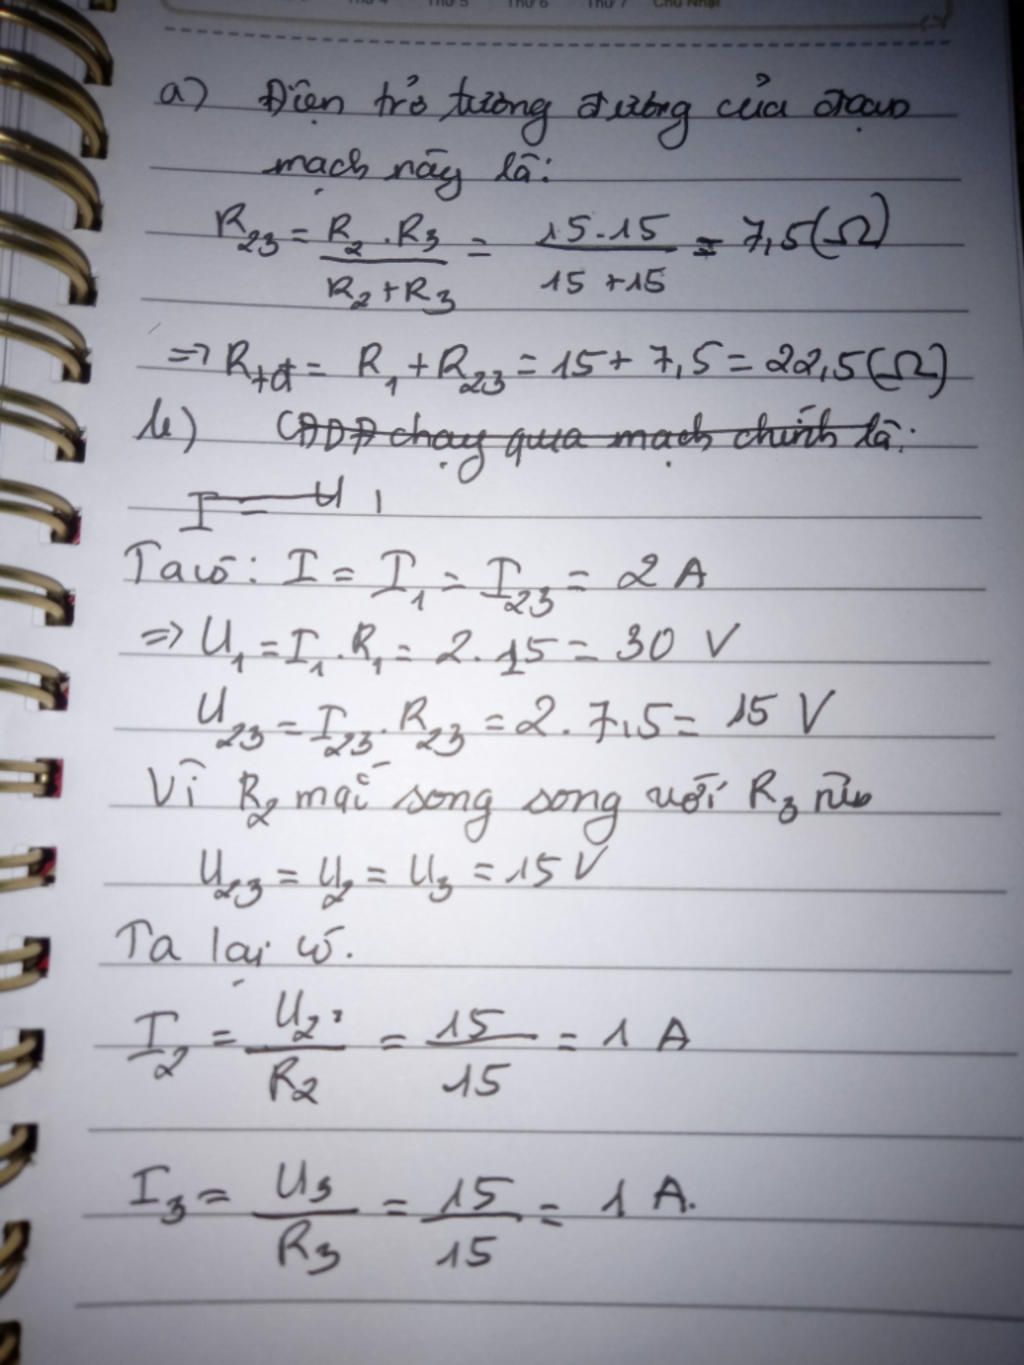 Thứ 5 Thứ 6 Thứ 7 Chủ Nhật
a) Điện trở tương đương của đoạn
mạch này là:
R23 = R2 . R3 / R2 + R3 = 15 . 15 / 15 + 15 = 7,5 (Ω)
=> Rtđ = R1 + R23 = 15 + 7,5 = 22,5 (Ω)
b) CĐDĐ chạy qua mạch chính là:
I = U
Ta có: I = I1 = I23 = 2 A
=> U1 = I1 . R1 = 2 . 15 = 30 V
U23 = I23 . R23 = 2 . 7,5 = 15 V
Vì R2 mắc song song với R3 nên
U23 = U2 = U3 = 15 V
Ta lại có.
I2 = U2 / R2 = 15 / 15 = 1 A
I3 = U3 / R3 = 15 / 15 = 1 A.